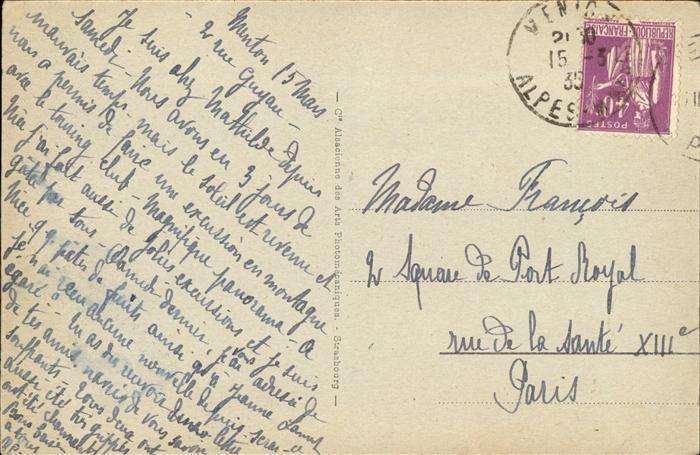 Menton 15 Mars
2 rue Guyau -
Je suis chez Mathilde depuis
samedi - Nous avons eu 3 jours de
mauvais temps, mais le soleil est revenu et
nous a permis de faire une excursion en montagne
avec le touring club - Magnifique panorama - A
Nice j'ai fait aussi de jolies excursions et je suis
gâtée par tous - Samedi dernier, j'ai adressé de
pâtes de fruits ainsi qu'à Jeanne
je n'ai reçu aucune nouvelle depuis, serait-ce
égaré? tu as dû recevoir lettre
de tes amis de vous savoir
souffrants - Tous deux ont
aussi été très grippés
ont été charmants
Bons baisers
à tous
— Cie Alsacienne des Arts Photomécaniques - Strasbourg —
MENTON
21 30
15 - 3
35
ALPES
REPUBLIQUE FRANÇAISE
POSTES
40
Madame François
2 Square de Port Royal
rue de la Santé XIIIe
Paris